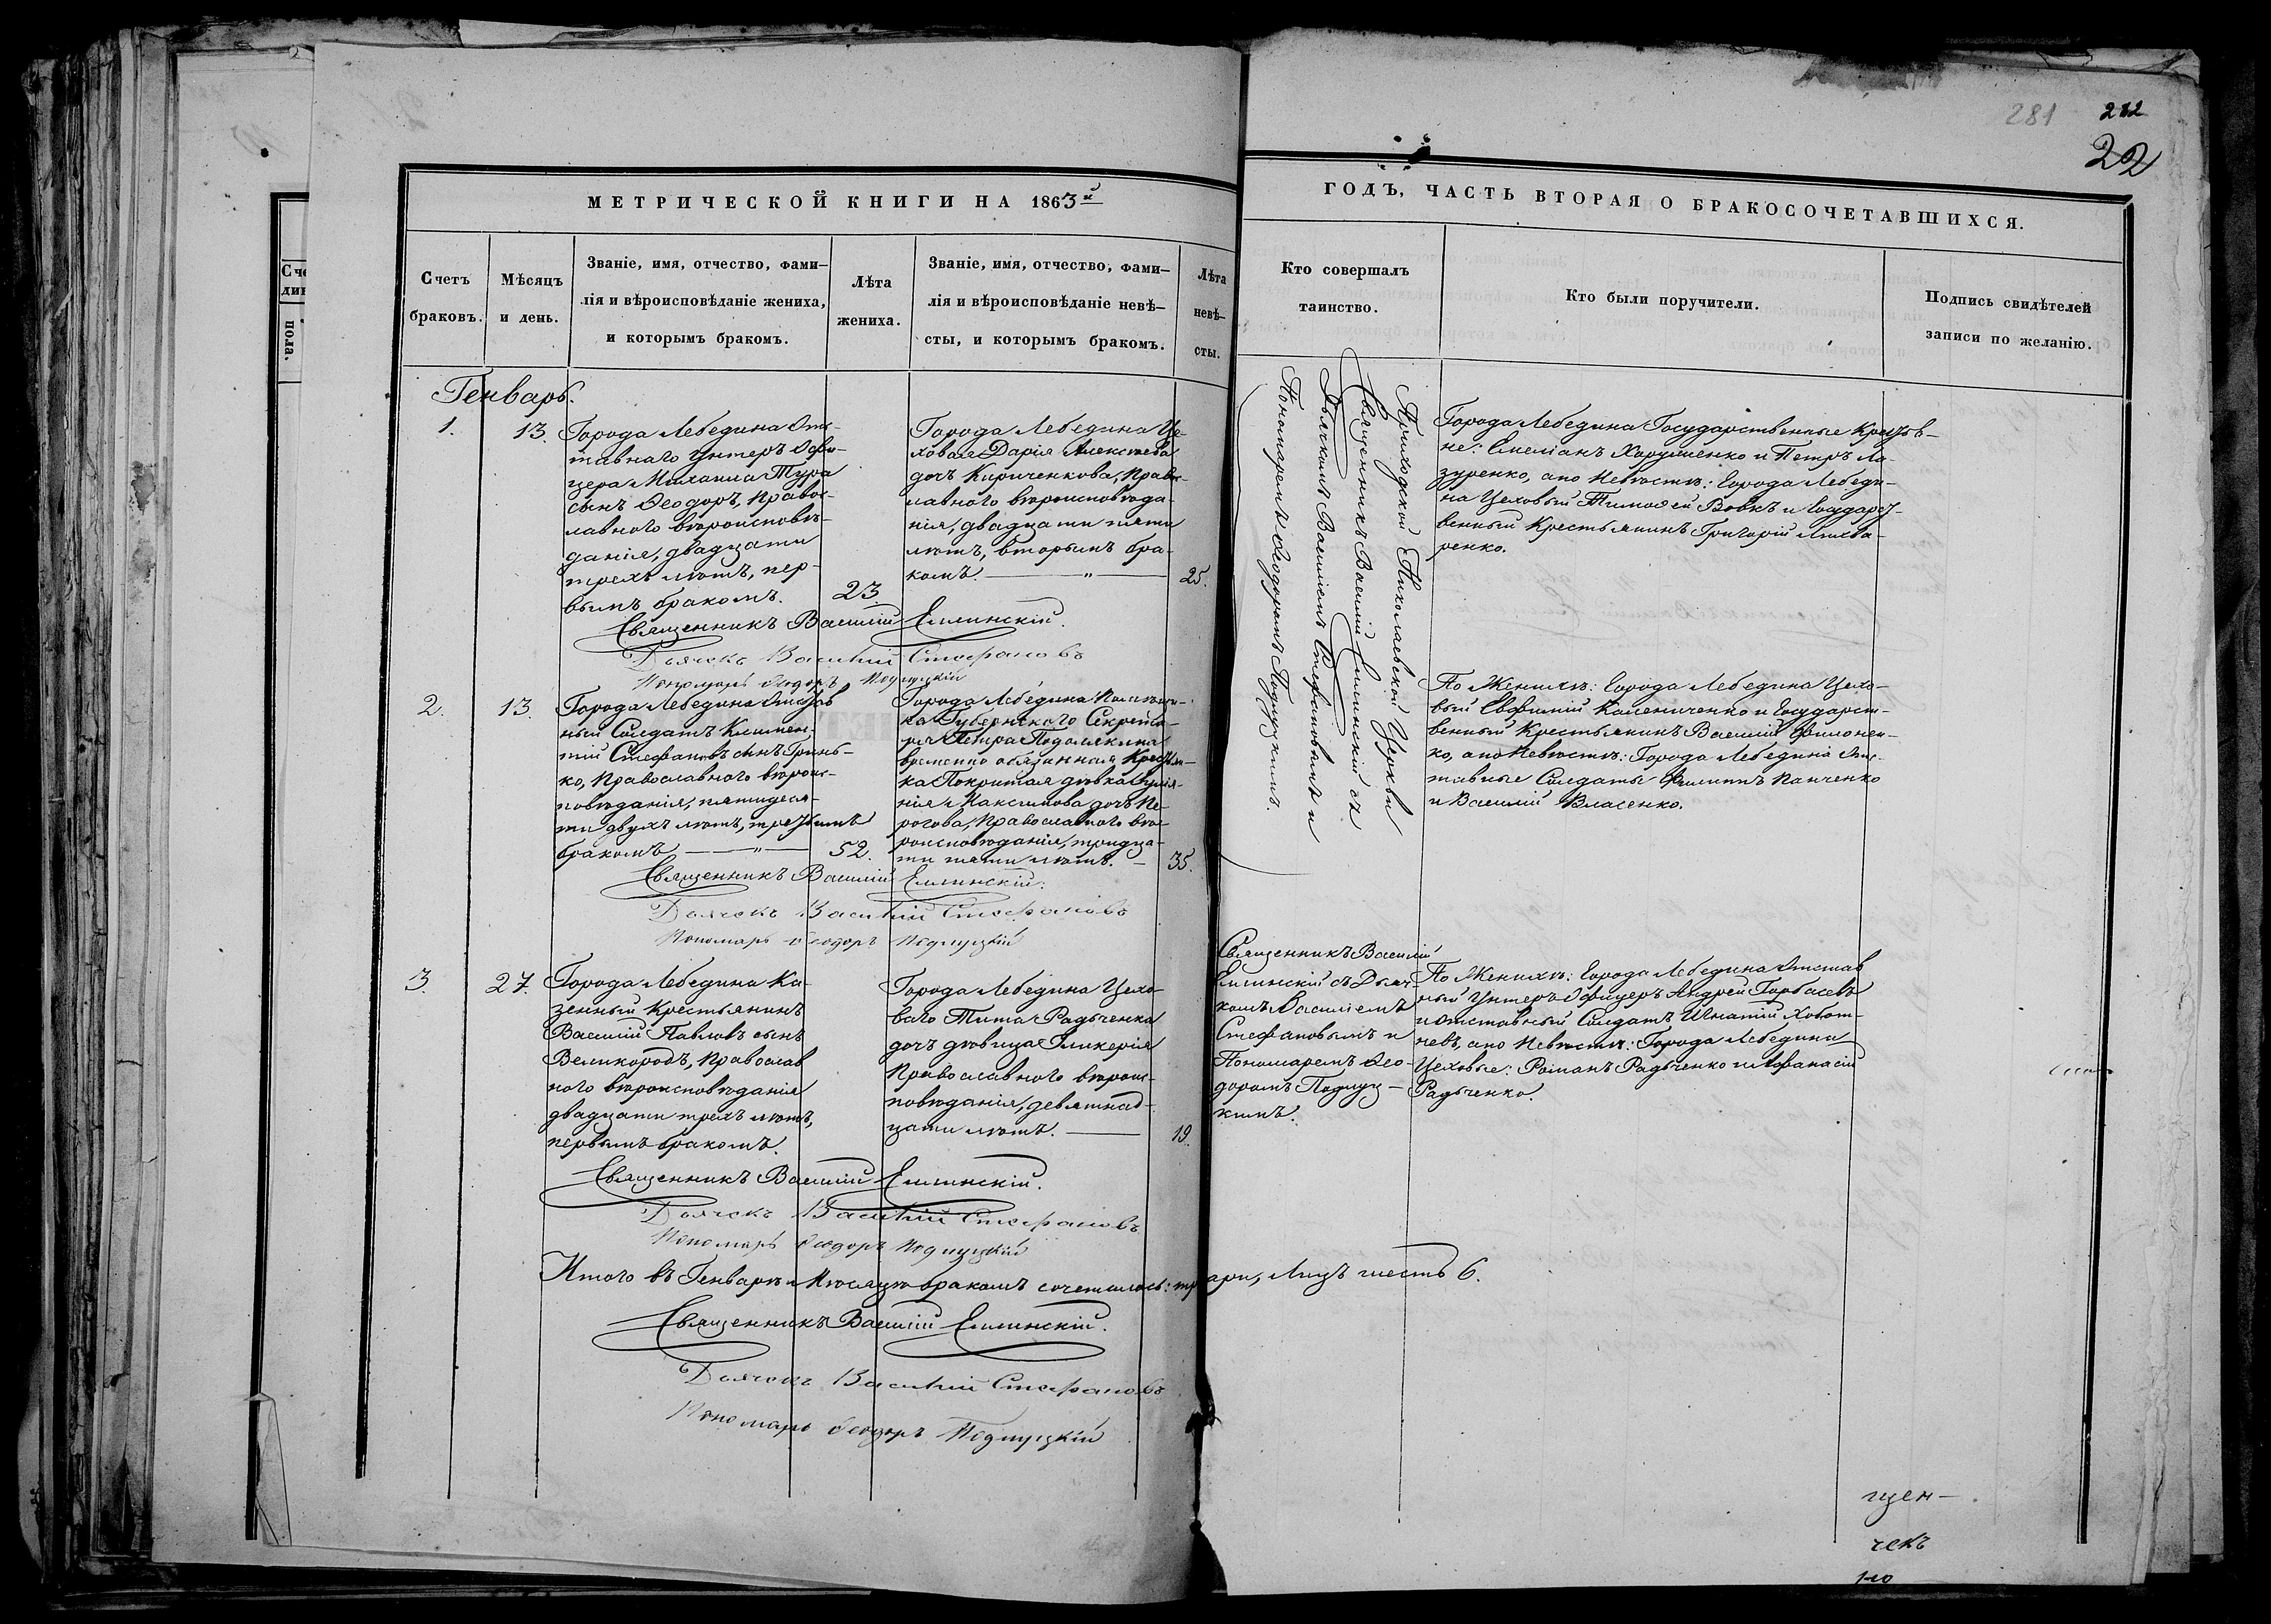 281 282
22
МЕТРИЧЕСКОЙ КНИГИ НА 1863й
ГОДЪ, ЧАСТЬ ВТОРАЯ О БРАКОСОЧЕТАВШИХСЯ.
Счетъ
браковъ.
Мѣсяцъ
и день.
Званіе, имя, отчество, фами-
лія и вѣроисповѣданіе жениха,
и которымъ бракомъ.
Лѣта
жениха.
Званіе, имя, отчество, фами-
лія и вѣроисповѣданіе невѣ-
сты, и которымъ бракомъ.
Лѣта
невѣ-
сты.
Кто совершалъ
таинство.
Кто были поручители.
Подпись свидѣтелей
записи по желанію.
Генварь.
1.
13.
Города Лебедина Отс-
тавнаго Унтеръ Офи-
цера Михаила Тура
сынъ Ѳеодоръ, Правос-
лавного вѣроисповѣ-
данія, двадцати
трехъ лѣтъ, пер-
вымъ бракомъ.
23
Города Лебедина Це-
ховая Дарія Алексѣева
дочъ Кириченкова, Правос-
лавного вѣроисповѣда-
нія, двадцати пяти
лѣтъ, вторымъ бра-
комъ. — " —
25.
Приходской Николаевской Церкви
Священникъ Василій Еллинскій съ
Дьячкомъ Василіемъ Стефановымъ и
Пономаремъ Ѳеодоромъ Подлуцкимъ.
Города Лебедина Государственные Крестья-
не: Емеліанъ Харушенко и Петръ Ла-
зуренко, апо Невѣстѣ: Города Лебеди-
на Цеховый Тимоѳей Вовкъ и Государст-
венный Крестьянинъ Григорій Лихва-
ренко.
Священникъ Василій Еллинскій.
Дьячекъ Василій Стефановъ
Пономарь Ѳеодоръ Подлуцкій
2.
13.
Города Лебедина Отстав
ный Солдатъ Климен-
тій Стефановъ сынъ Гринь-
ко, Православного вѣроис-
повѣданія, пятидеся-
ти двухъ лѣтъ, третьимъ
бракомъ — " —
52.
Города Лебедина Помѣщи-
ка Губернского Секрета-
ря Петра Подолякина
временно обязанная Крестьян-
ка Покритая дѣвка Іулія-
нія Максимова дочъ Пе-
рогова, Православного вѣ-
роисповѣданія, тридца-
ти пяти лѣтъ. —
35.
По Женихѣ: Города Лебедина Цехо-
вый Евфимій Каленниченко и Государст-
венный Крестьянинъ Василій Филонен-
ко, апо Невѣстѣ: Города Лебедина Отс-
тавные Солдаты Филиппъ Панченко
и Василій Власенко.
Священникъ Василій Еллинскій.
Дьячекъ Василій Стефановъ
Пономарь Ѳеодоръ Подлуцкій
3.
27.
Города Лебедина Ка-
зенный Крестьянинъ
Василій Павловъ сынъ
Великородъ, Православ
ного вѣроисповѣданія
двадцати трехъ лѣтъ,
первымъ бракомъ.
Города Лебедина Цехо-
ваго Тита Радьченка
дочъ дѣвица Гликерія
Православного вѣроис-
повѣданія, девятнад-
цати лѣтъ. —
19.
Священникъ Василій
Еллинскій съ Дьяч-
комъ Василіемъ
Стефановымъ и
Пономаремъ Ѳео-
доромъ Подлуц-
кимъ.
По Женихѣ: Города Лебедина Отстав
ный Унтеръ Офицеръ Андрей Горбасевъ
и отставный Солдатъ Игнатій Хобот-
невъ, апо Невѣстѣ: Города Лебедина
Цеховые: Романъ Радьченко и Аѳанасій
Радьченко.
Священникъ Василій Еллинскій.
Дьячекъ Василій Стефановъ
Пономарь Ѳеодоръ Подлуцкій
Итого въ Генварѣ Мѣсяцѣ бракомъ сочеталось: три пари, Лицъ шесть 6.
Священникъ Василій Еллинскій.
Дьячекъ Василій Стефановъ
Пономарь Ѳеодоръ Подлуцкій
щен-
чекъ